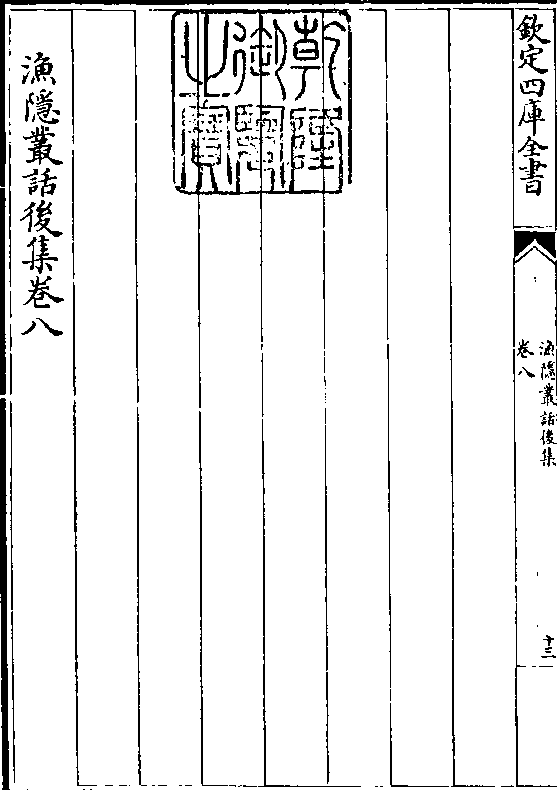 欽定四庫全書
漁隱叢話後集
卷八
十三
乾隆
御覽
之寶
漁隱叢話後集卷八